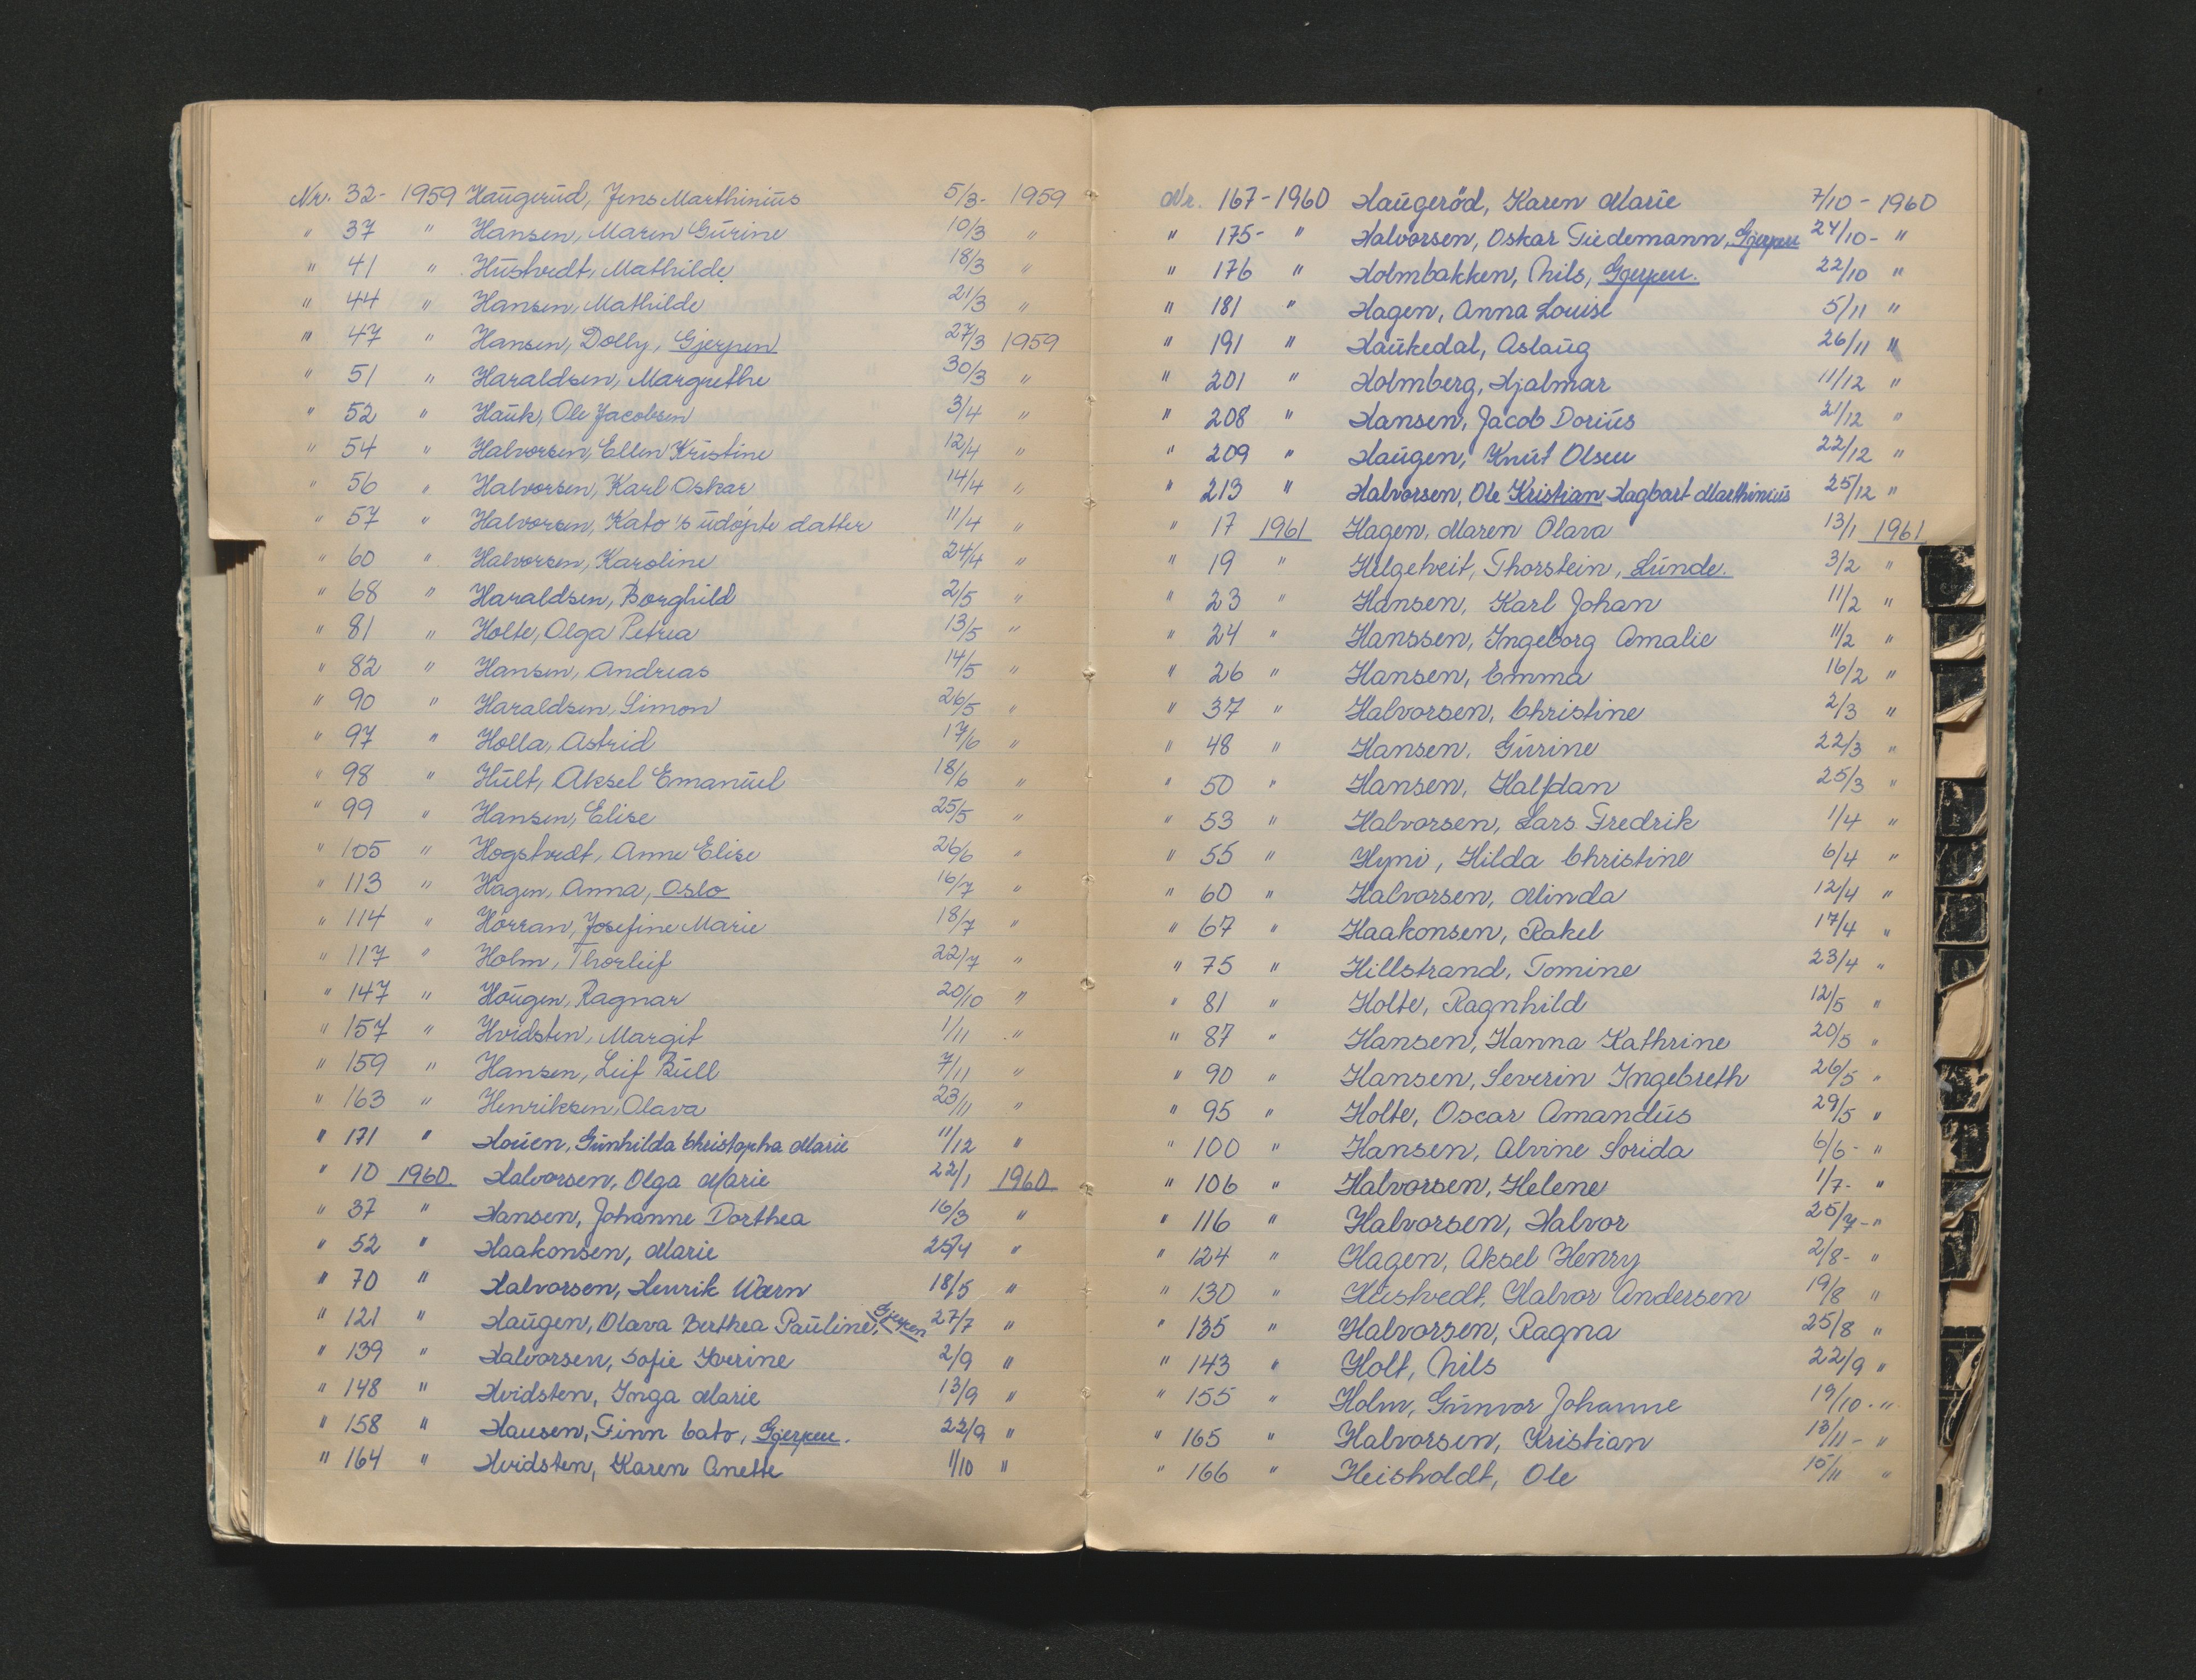 Nr. 32- 1959 Haugerud, Jens Marthinius 5/3- 1959
" 37 " Hansen, Maren Gurine 10/3 "
" 41 " Hustvedt, Mathilde 18/3 "
" 44 " Hansen, Mathilde 21/3 "
" 47 " Hansen, Dolly, Gjerpen 27/3 1959
" 51 " Haraldsen, Margrethe 30/3 "
" 52 " Hauk, Ole Jacobsen 3/4 "
" 54 " Halvorsen, Ellen Kristine 12/4 "
" 56 " Halvorsen, Karl Oskar 14/4 "
" 57 " Halvorsen, Kato's udøpte datter 11/4 "
" 60 " Halvorsen, Karoline 24/4 "
" 68 " Haraldsen, Borghild 2/5 "
" 81 " Holte, Olga Petrea 13/5 "
" 82 " Hansen, Andreas 14/5 "
" 90 " Haraldsen, Simon 26/5 "
" 97 " Holla, Astrid 17/6 "
" 98 " Hult, Aksel Emanuel 18/6 "
" 99 " Hansen, Elise 25/5 "
" 105 " Hogstvedt, Anne Elise 26/6 "
" 113 " Hagen, Anna, Oslo 16/7 "
" 114 " Hörran, Josefine Marie 18/7 "
" 117 " Holm, Thorleif 22/7 "
" 147 " Hougen, Ragnar 20/10 "
" 157 " Hvidsten, Margit 1/11 "
" 159 " Hansen, Leif Bull 7/11 "
" 163 " Henriksen, Olava 23/11 "
" 171 " Houen, Gunhilda Christopha Marie 11/12 "
" 10 1960 Halvorsen, Olga Marie 22/1 1960
" 37 " Hansen, Johanne Dorthea 16/3 "
" 52 " Haakonsen, Marie 25/4 "
" 70 " Halvorsen, Henrik Wærn 18/5 "
" 121 " Haugen, Olava Berthea Pauline, Gjerpen 27/7 "
" 139 " Halvorsen, Sofie Iverine 2/9 "
" 148 " Hvidsten, Inga Marie 13/9 "
" 158 " Hansen, Finn Cato, Gjerpen. 22/9 "
" 164 " Hvidsten, Karen Anette 1/10 "
Nr. 167-1960 Haugeröd, Karen Marie 7/10 - 1960
" 175- " Halvorsen, Oskar Tiedemann, Gjerpen 24/10- "
" 176 " Holmbakken, Nils, Gjerpen. 22/10 "
" 181 " Hagen, Anna Louise 5/11 "
" 191 " Haukedal, Aslaug 26/11 "
" 201 " Holmberg, Hjalmar 11/12 "
" 208 " Hansen, Jacob Dorius 21/12 "
" 209 " Haugen, Knut Olsen 22/12 "
" 213 " Halvorsen, Ole Kristian Hagbart Marthinius 25/12 "
" 17 1961 Hagen, Maren Olava 13/1 1961
" 19 " Helgetveit, Thorstein, Lunde. 3/2 "
" 23 " Hansen, Karl Johan 11/2 "
" 24 " Hanssen, Ingeborg Amalie 11/2 "
" 26 " Hansen, Emma 16/2 "
" 37 " Halvorsen, Christine 2/3 "
" 48 " Hansen, Gurine 22/3 "
" 50 " Hansen, Halfdan 25/3 "
" 53 " Halvorsen, Lars Fredrik 1/4 "
" 55 " Hyni, Hilda Christine 6/4 "
" 60 " Halvorsen, Minda 12/4 "
" 67 " Haakonsen, Rakel 17/4 "
" 75 " Hillstrand, Tomine 23/4 "
" 81 " Holte, Ragnhild 12/5 "
" 87 " Hansen, Hanna Kathrine 20/5 "
" 90 " Hansen, Severin Ingebreth 26/5 "
" 95 " Holte, Oscar Amandus 29/5 "
" 100 " Hansen, Alvine Sorida 6/6- "
" 106 " Halvorsen, Helene 1/7- "
" 116 " Halvorsen, Halvor 25/7- "
" 124 " Hagen, Aksel Henry 2/8- "
" 130 " Hustvedt, Halvor Andersen 19/8 "
" 135 " Halvorsen, Ragna 25/8 "
" 143 " Holt, Nils 22/9 "
" 155 " Holm, Gunvor Johanne 19/10- "
" 165 " Halvorsen, Kristian 13/11- "
" 166 " Heisholdt, Ole 15/11 "